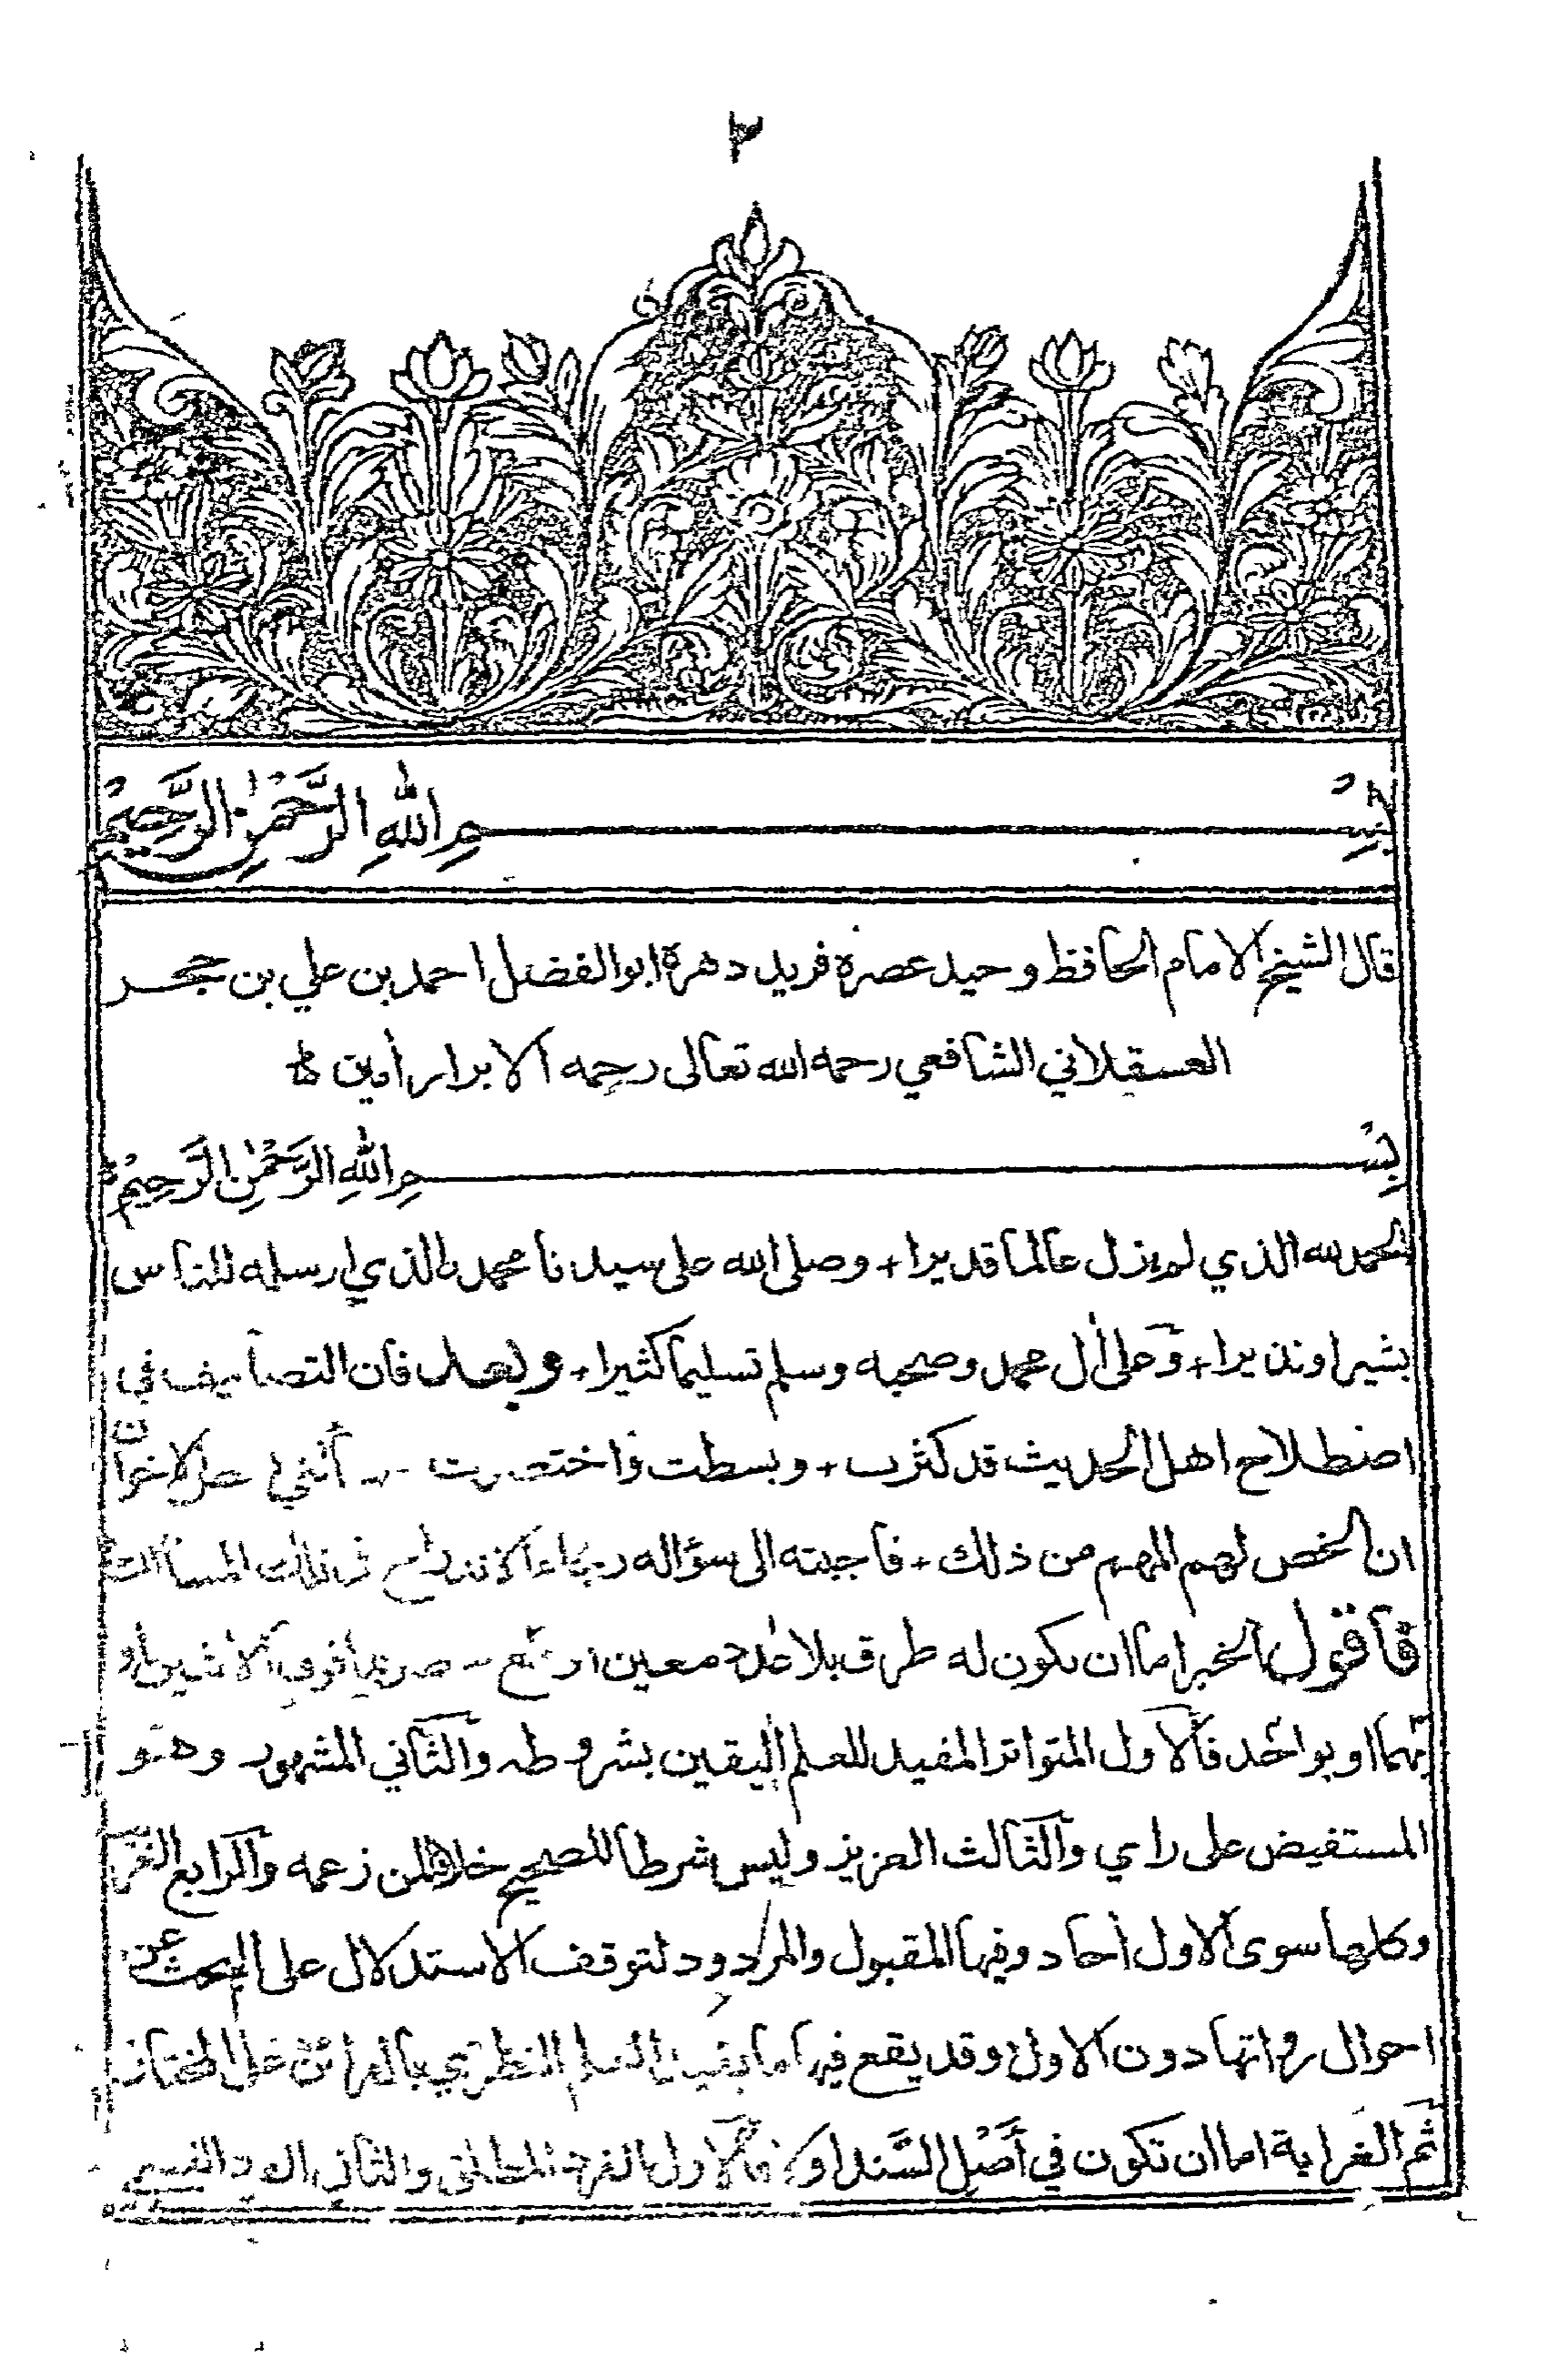 ٢
بِسْمِ اللهِ الرَّحْمٰنِ الرَّحِيْمِ
قال الشيخ الامام الحافظ وحيد عصره فريد دهره ابو الفضل احمد بن علي بن حجر
العسقلاني الشافعي رحمه الله تعالى رحمه الابرار أمين
بِسْمِ اللهِ الرَّحْمٰنِ الرَّحِيْمِ
الحمد لله الذي لم يزل عالما قديرا + وصلى الله على سيدنا محمد الذي ارسله للناس
بشيرا ونذيرا + وعلى أل محمد وصحبه وسلم تسليما كثيرا + وبعد فان التصانيف في
اصطلاح اهل الحديث قد كثرت + وبسطت واختصرت الاخوان
ان الخص لهم المهم من ذلك + فاجبته الى سؤاله رجاء الاندراج في تلك المسالك
فاقول الخبر اما ان يكون له طرق بلا عدد معين او مع حصر بما فوق الاثنين او
بهما او بواحد فالاول المتواتر المفيد للعلم اليقين بشروطه والثاني المشهور وهو
المستفيض على راي والثالث العزيز وليس شرطا للصحيح خلافا لمن زعمه والرابع الغريب
وكلها سوى الاول أحاد وفيها المقبول والمردود لتوقف الاستدلال على البحث عن
احوال رواتها دون الاول وقد يقع فيها ما يفيد العلم النظري بالقرائن على المختار
ثم الغرابة اما ان تكون في أصل السند او لا فالاول الفرد المطلق والثاني الفرد النسبي